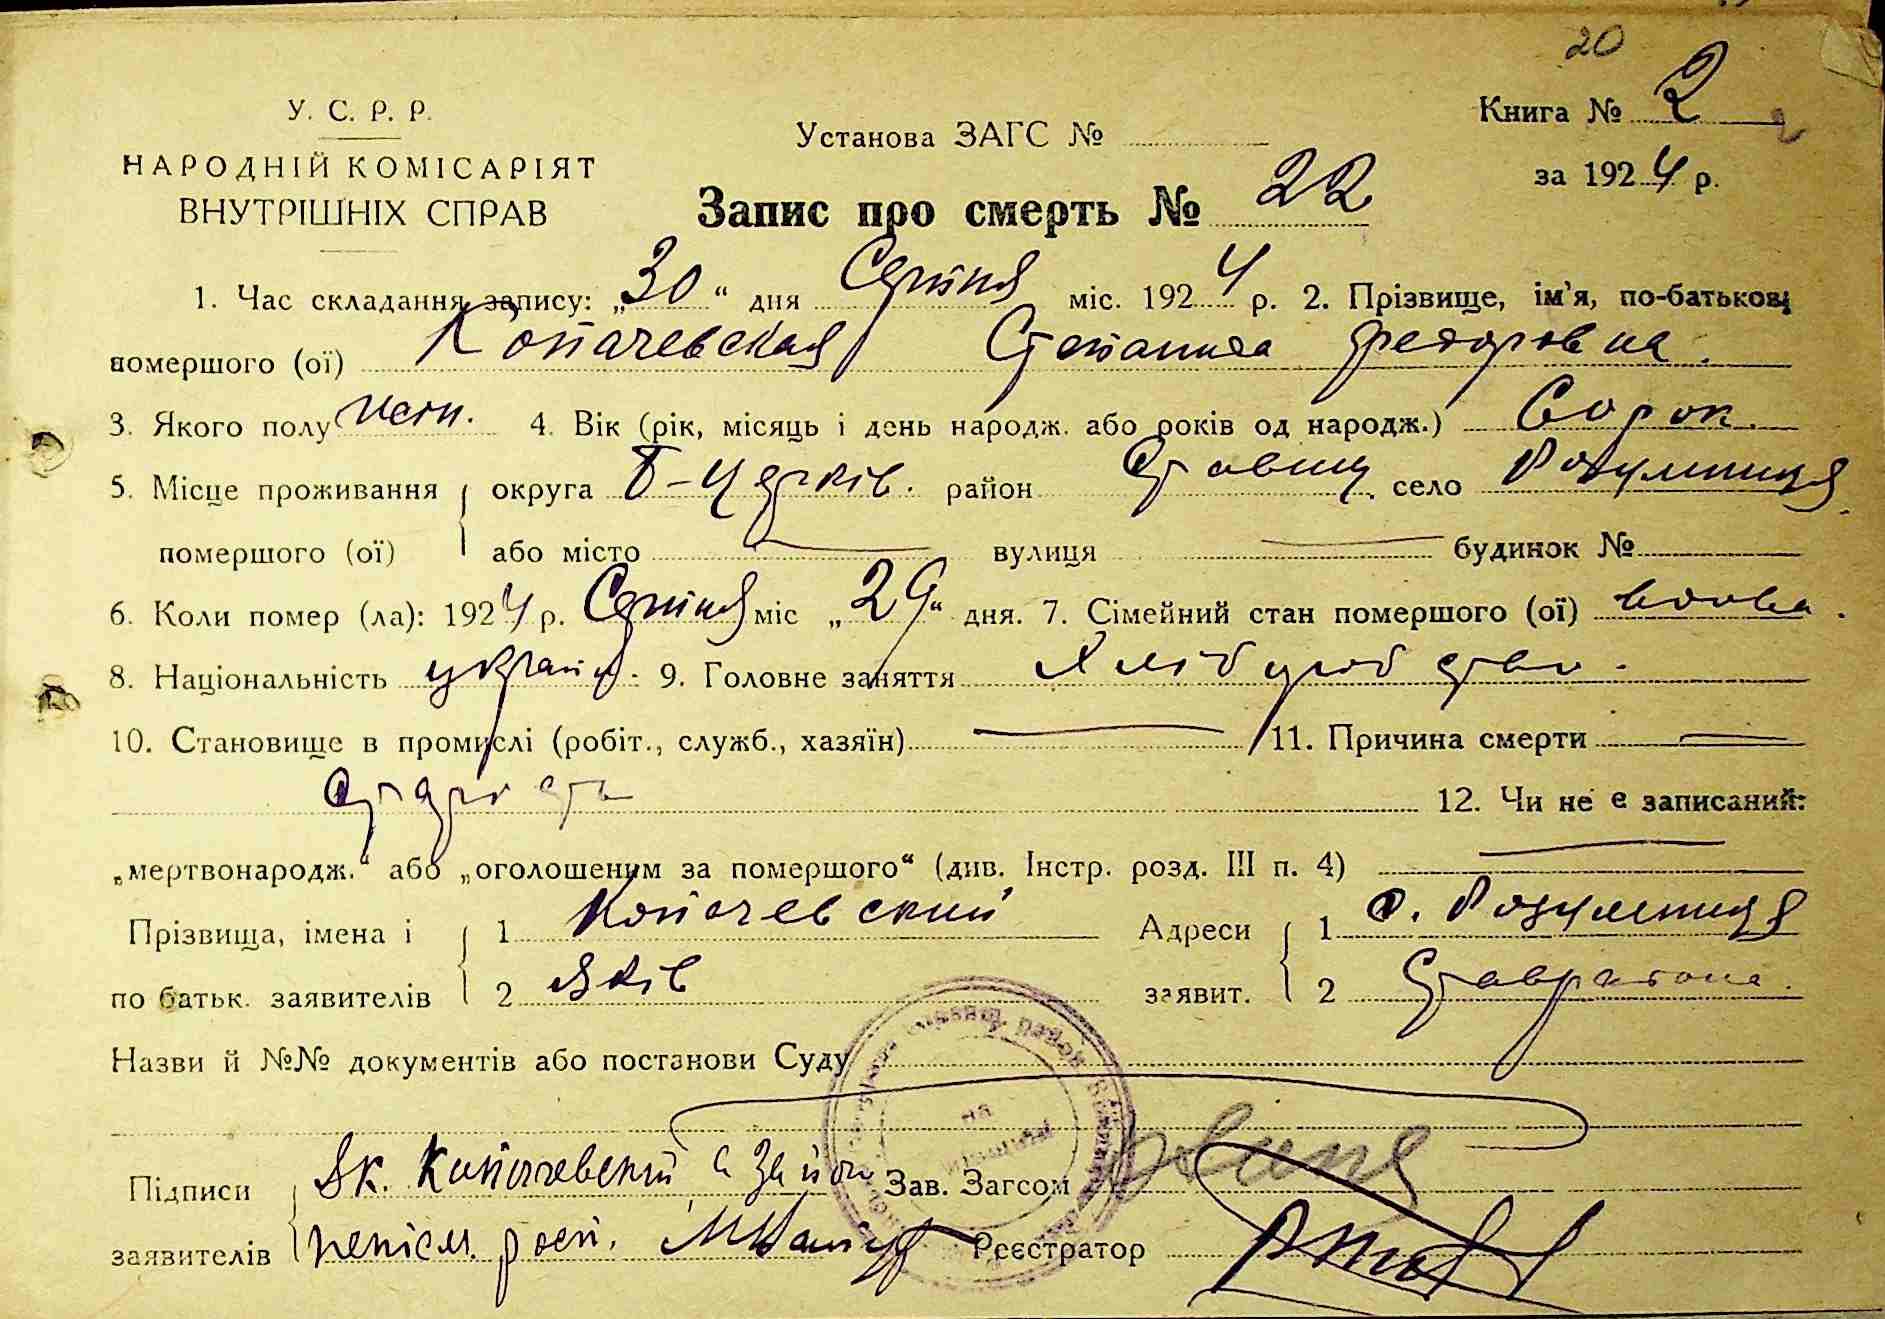 20
У. С. Р. Р.
НАРОДНІЙ КОМІСАРІЯТ
ВНУТРІШНІХ СПРАВ
Установа ЗАГС №
Книга № 2
за 1924 р.
Запис про смерть № 22
1. Час складання запису: „30“ дня Серпня міс. 1924 р. 2. Прізвище, ім'я, по-батькові
помершого (ої) Копачевская Степанида Федоровна.
3. Якого полу жен. 4. Вік (рік, місяць і день народж. або років од народж.) Сорок.
5. Місце проживання округа Б-Церків. район Ставищ. село Розумниця
помершого (ої) або місто вулиця будинок №
6. Коли помер (ла): 1924 р. Серпня міс „29“ дня. 7. Сімейний стан помершого (ої) вдова.
8. Національність україн. 9. Головне заняття Хлібороб ство.
10. Становище в промислі (робіт., служб., хазяїн) 11. Причина смерти
старость
12. Чи не є записаний:
„мертвонародж.“ або „оголошеним за помершого“ (див. Інстр. розд. III п. 4)
Прізвища, імена і 1 Копачевский Адреси 1 с. Розумниця
по батьк. заявителів 2 Яків заявит. 2 Ставищ. района.
Назви й №№ документів або постанови Суду
Підписи Як. Копачевский а за його Зав. Загсом
заявителів непісм. росп. Реєстратор